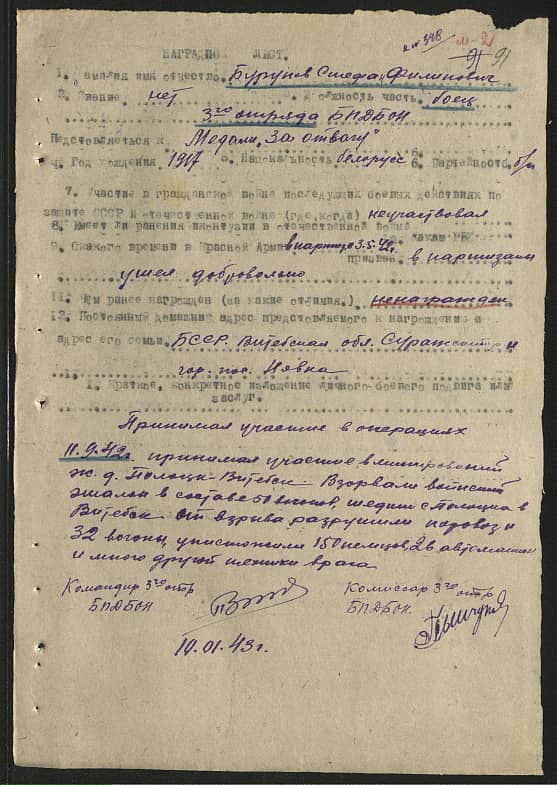 348
91
НАГРАДНОЙ ЛИСТ.
1. Фамилия имя отчество. Бурунов Стефан Филипович
2. Звание нет . Должность часть боец
3го отряда БПДБОН
Педставляеться к Медали „За отвагу"
4. Год рождения 1917 5. Национальность белорусс 6. Партийность б/п
7. Участие в гражданской войне последующих боевых действиях по
защите СССР и отечественной войне (где, когда) неучаствовал
8. Имеет ли ранения и контузии в отечественной войне
9. Скакого времени в Красной Армии в партиз 3.5.42г. каким РВК
призван в партизаны
ушел добровольно
11. Чем ранее награжден (за какие отличия.) ненагражден
12. Постоянный домашний адрес предствляемого к награждению и
адрес его семьи. БССР. Витебская обл. Суражский р-н
гор. пос. Яновка
1. Краткое, конкретное изложение личного боевого подвига или
заслуг.
Принимал участие в операциях
11.9.42г. принимал участие в минировании
ж. д. Полоцк-Витебск. Взорвали воинский
эшалон в составе 50 вагонов, шедший с Полоцка в
Витебск. От взрыва разрушили паровоз и
32 вагоны, уничтожили 150 немцов, 26 автомашин
и много другой техники врага
Командир 3го отр Комиссар 3го отр
БПДБОН БПДБОН.
10.01.43г.